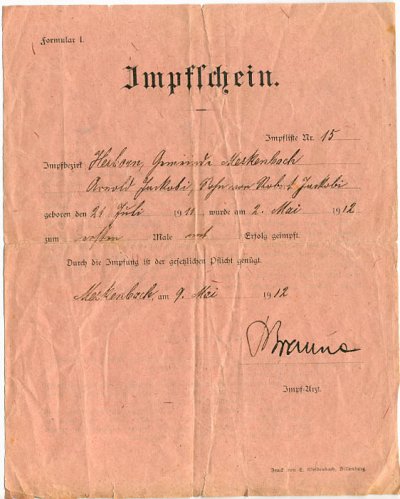 Formular I.
Impfschein.
Impfliste Nr. 15
Impfbezirk Herborn, Gemeinde Merkenbach
Arnold Jackobi, Sohn von Robert Jackobi
geboren den 21 Juli 1911, wurde am 2. Mai 1912
zum ersten Male mit Erfolg geimpft.
Durch die Impfung ist der gesetzlichen Pflicht genügt.
Merkenbach, am 9. Mai 1912
Impf-Arzt.
Druck von E. Weidenbach, Dillenburg.